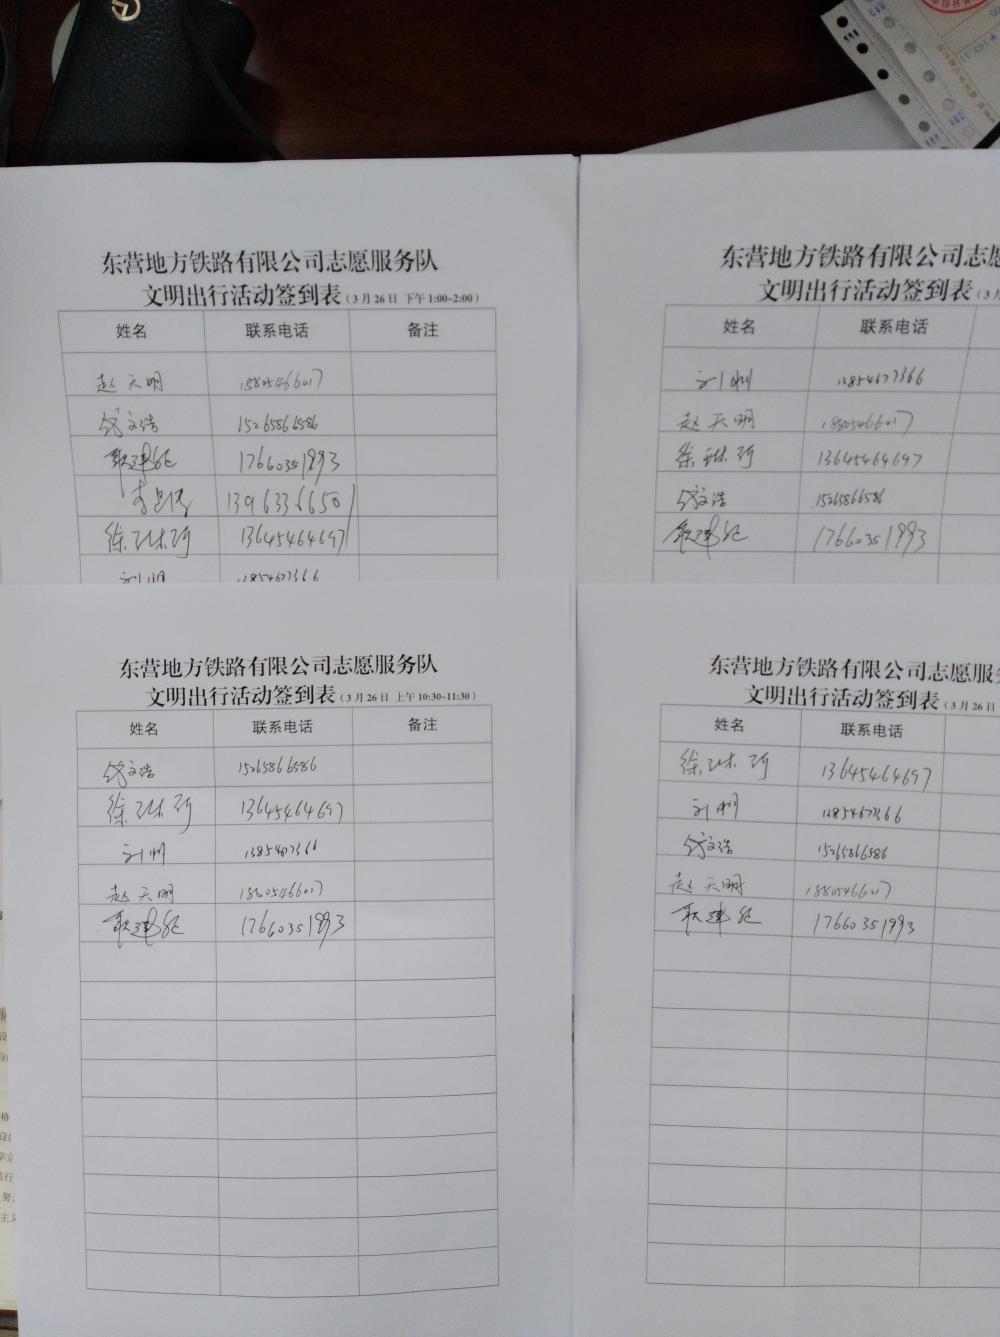 东营地方铁路有限公司志愿服务队
文明出行活动签到表（3月26日 下午1:00-2:00）
姓名 联系电话 备注
赵天明 18805466017
15265866586
耿建纪 17660351993
13963366501
徐琳珂 13645464697
刘洲
东营地方铁路有限公司志愿
文明出行活动签到表（3月
姓名 联系电话
刘洲
赵天明 18805466017
徐琳珂 13645464697
15265866586
耿建纪 17660351993
东营地方铁路有限公司志愿服务队
文明出行活动签到表（3月26日 上午10:30-11:30）
姓名 联系电话 备注
15265866586
徐琳珂 13645464697
刘洲
赵天明 18805466017
耿建纪 17660351993
东营地方铁路有限公司志愿服务
文明出行活动签到表（3月26日
姓名 联系电话
徐琳珂 13645464697
刘洲
15265866586
赵天明 18805466017
耿建纪 17660351993